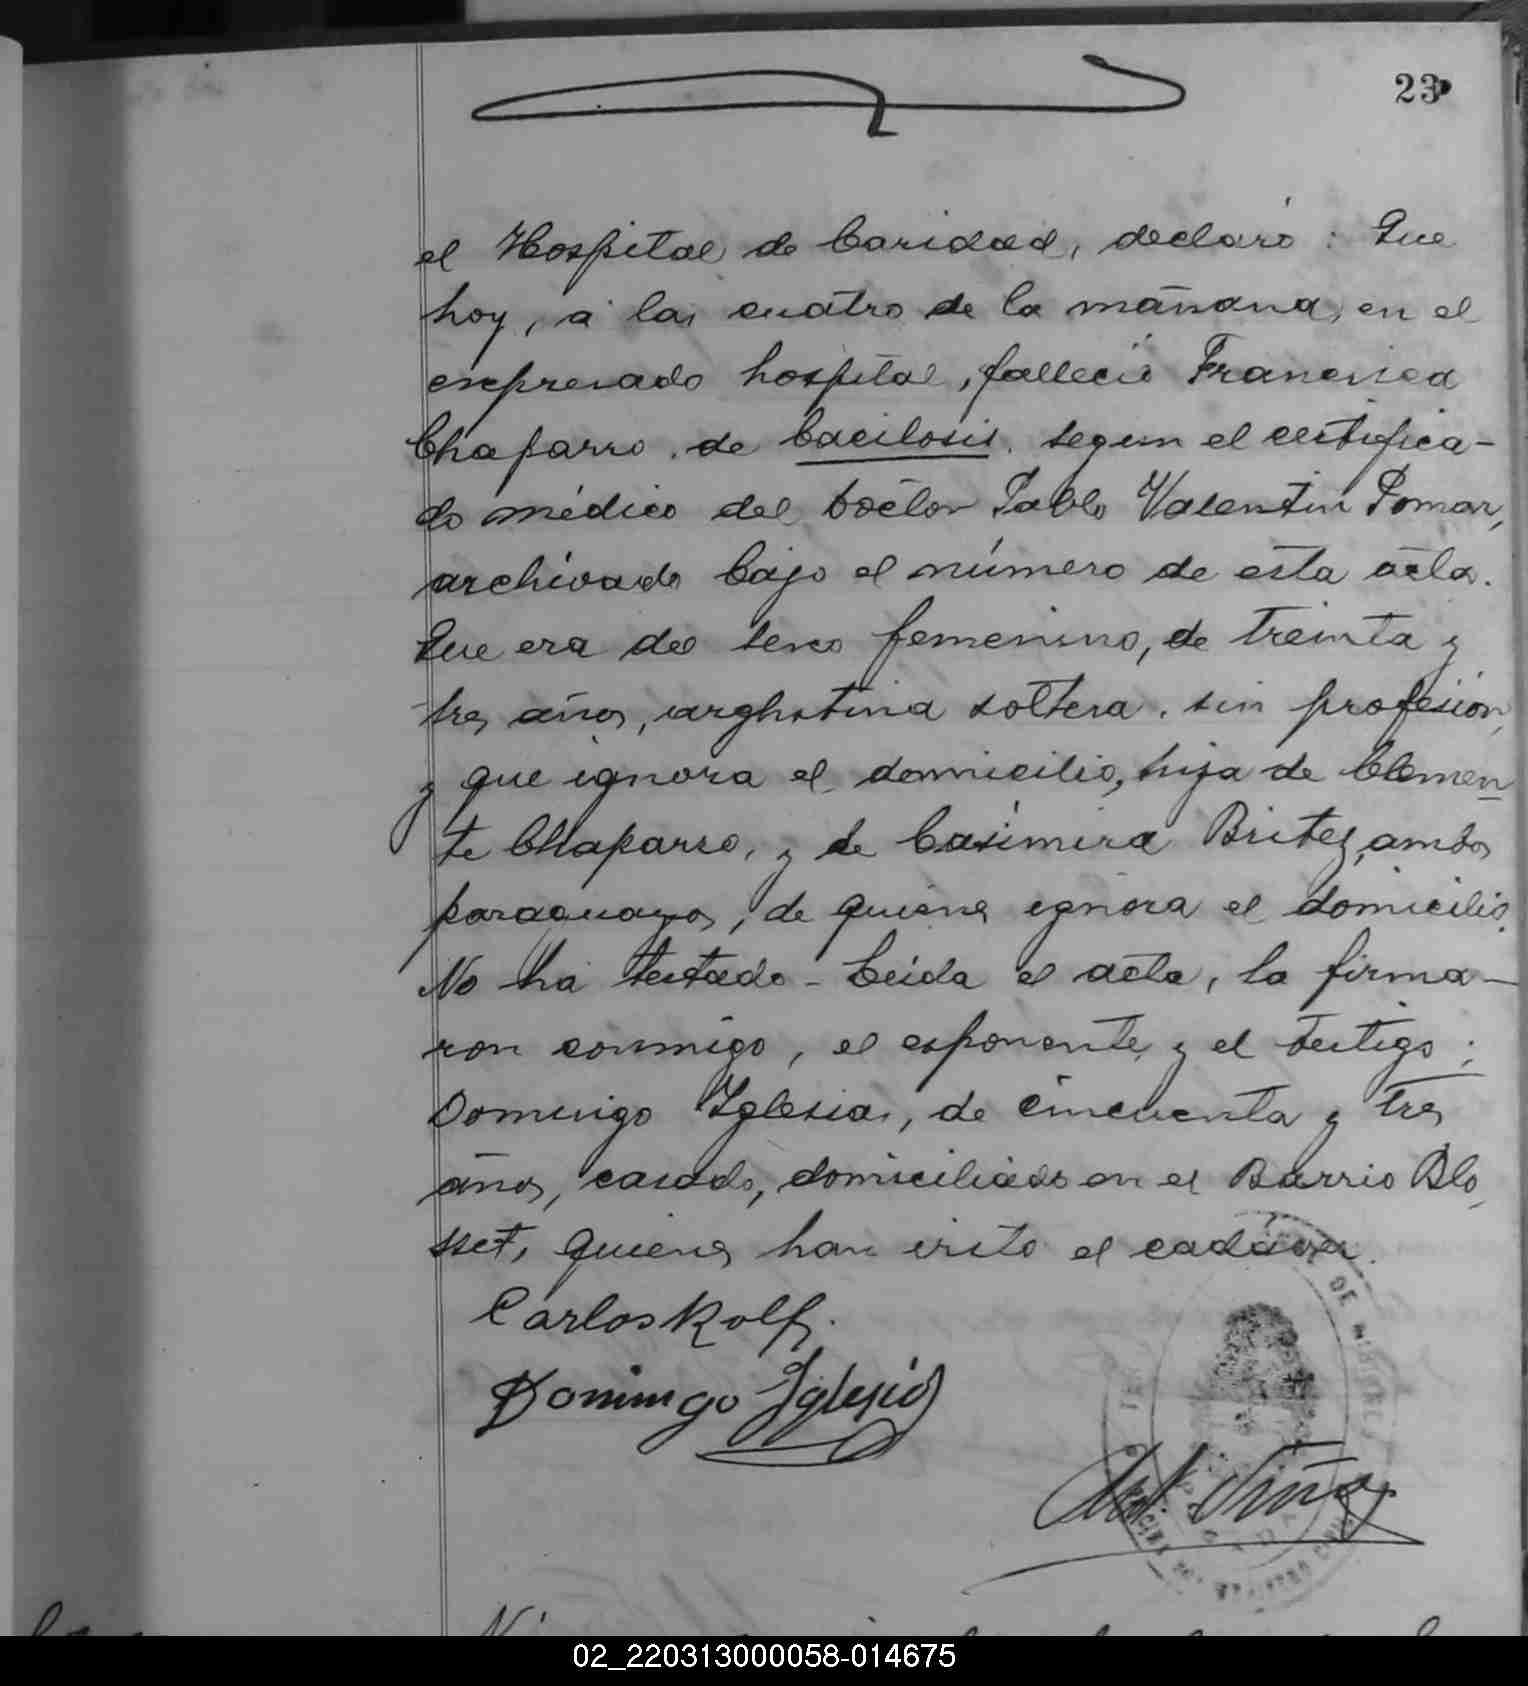 23
el Hospital de Caridad, declaró: Que
hoy, á las cuatro de la mañana, en el
expresado hospital, falleció Francisca
Chaparro, de bacilosis, segun el certifica-
do médico del Doctor Pablo Valentin Pomar,
archivado bajo el número de esta acta.
Que era del sexo femenino, de treinta y
tres años, argentina soltera, sin profesión,
y que ignora el domicilio, hija de Clemen
te Chaparro, y de Casimira Britez, ambos
paraguayos, de quienes ignora el domicilio.
No ha testado - Leida el acta, la firma-
ron conmigo, el esponente y el testigo:
Domingo Iglesias, de cincuenta y tres
años, casado, domiciliado en el Barrio Blo
sset, quienes han visto el cadáver.
Carlos Rolf.
Domingo Iglesias
DE MISIONES
POSADAS
02_220313000058-014675